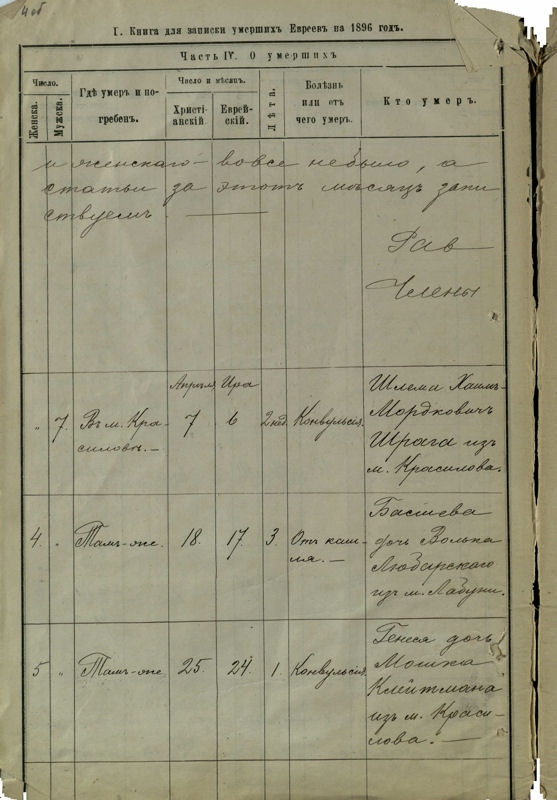 4 об
I. Книга для записки умершихъ Евреевъ на 1896 годъ.
Часть IV. О умершихъ
Число.
Женска.
Мужска.
Гдѣ умеръ и по-
гребенъ.
Число и мѣсяцъ.
Христі-
анскій.
Еврей-
скій.
Лѣта.
Болѣзнь
или отъ
чего умеръ.
Кто умеръ.
и женскаго – вовсе небыло, а
статьи за этотъ мѣсяцъ запи
ствуемъ ———
Рав
Члены
Апрѣля Ира
„ 7. Въ м. Кра-
силовѣ. –
7 6 2 нед. Конвульсія.
Шлема Хаимъ-
Мордковичъ
Шрага изъ
м. Красилова.
4. „ Тамъ-же. 18. 17. 3. Отъ каш-
ля. –
Басшева
дочь Волька
Любарскаго
изъ м. Лабуни.
5 „ Тамъ-же 25. 24. 1. Конвульсія.
Генеся дочь
Мошка
Клейтмана
изъ м. Краси-
лова. –